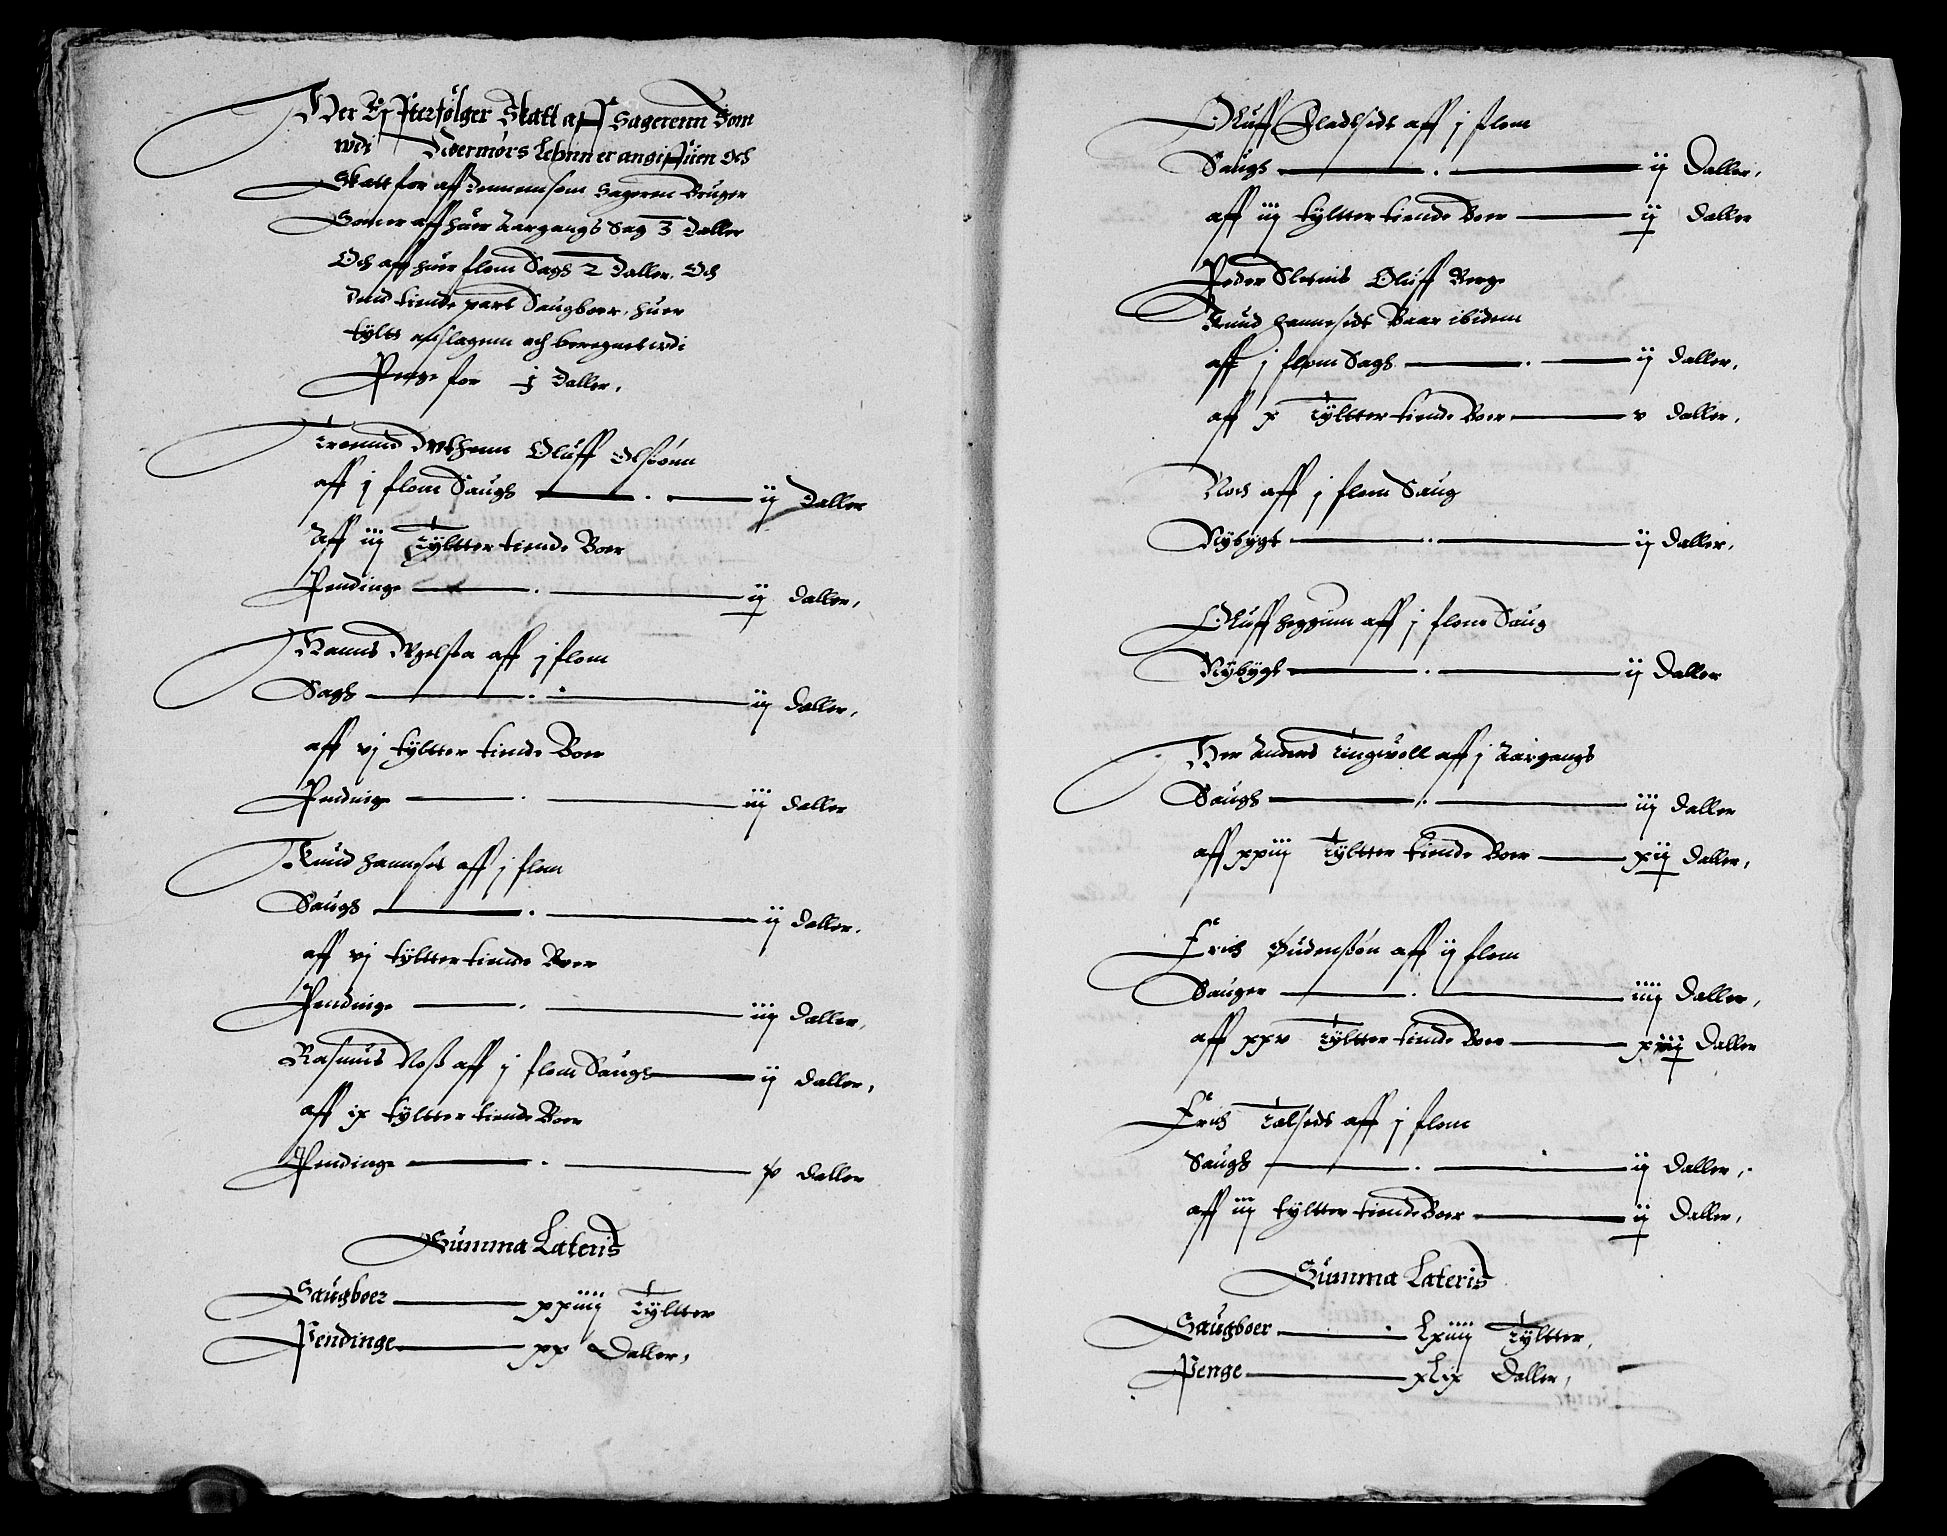 Her Efterfølger Skatt aff Sagerenn Som
wdi Nordmørs Lehnn er angiffuen Och
Skatt for aff dennem som Sageren Bruger
Som er aff huer Aargangs Sag 3 Daller
Och aff huer flom Sagh 2 Daller. Och
dend tiende part Saugboer, huer
tylt anslagenn och beregnet wdi
Penge for j Daller,
Oluff Olssønn
aff j flom Saugh ij Daller
Aff iij Tyltter tiende Boer
Pendinge ij Daller,
Hanns aff j flom
Sagh ij Daller,
aff vj tyltter tiende Boer
Pendinge iij Daller
Knud Hanneset aff j flom
Saugh ij Daller.
aff vj tyltter tiende Boer
Pendinge iij Daller,
Rasmus Noß aff j flom Saugh ij Daller,
aff ix tyltter tiende Boer
Pendinge v Daller
Summa Lateris
Saugboer xxiiij Tyltter
Pendinge xx Daller,
Oluff aff j flom
Saugh ij Daller,
aff iij tyltter tiende Boer ij Daller
Peder Oluff Berge
Knud Hannesedt Baar ibidem
aff j flom Sagh ij Daller,
aff x Tyltter tiende Boer v Daller,
Noch aff j flom Saug
Nybygt ij Daller,
Oluff Heggum aff j flom Saug
Nybygt ij Daller
Her Anders Tingwoll aff j Aargangs
Saugh iij Daller
aff xxiij Tyltter tiende Boer xij Daller,
Erich aff ij flom
Sauger iiij Daller,
aff xxv Tyltter tiende Boer xiij Daller
Erich Talsedt aff j flom
Saugh ij Daller,
aff iij tyltter tiende Boer ij Daller,
Summa Lateris
Saugboer Lxiiij Tyltter,
Penge xLix Daller,